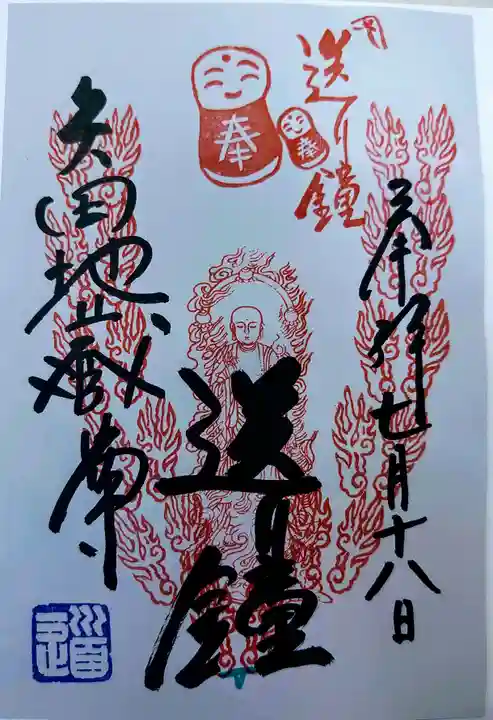 奉拝 七月十八日
送り鐘
奉
奉
送り鐘
矢田地蔵尊